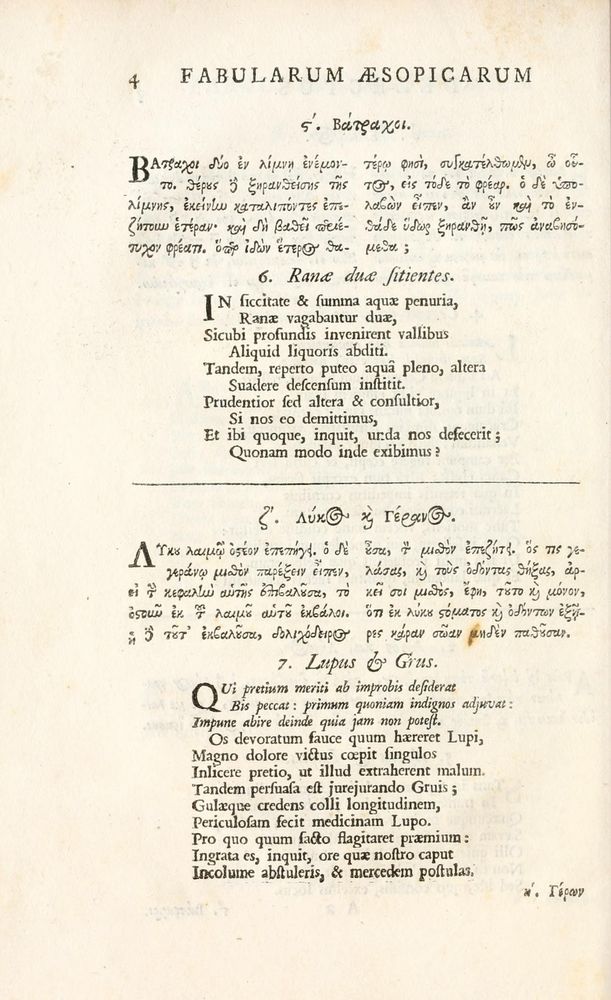 4 FABULARUM ÆSOPICARUM
ϛʹ. Βάτραχοι.
ΒΑτραχοι δύο ἐν λίμνῃ ἐνέμον-
το. θέρους δὲ ξηρανθείσης τῆς
λίμνης, ἐκείνην καταλιπόντες ἐπε-
ζήτουν ἑτέραν· καὶ δὴ βαθεῖ περιέ-
τυχον φρέατι. ὅπερ ἰδὼν ἕτερος θα-
τέρῳ φησὶ, συγκατέλθωμεν, ὦ οὗ-
τος, εἰς τόδε τὸ φρέαρ. ὁ δὲ ὑπο-
λαβὼν εἶπεν, ἂν οὖν καὶ τὸ ἐν-
θάδε ὕδωρ ξηρανθῇ, πῶς ἀναβησό-
μεθα ;
6. Ranæ duæ ſitientes.
IN ſiccitate & ſumma aquæ penuria,
Ranæ vagabantur duæ,
Sicubi profundis invenirent vallibus
Aliquid liquoris abditi.
Tandem, reperto puteo aquâ pleno, altera
Suadere deſcenſum inſtitit.
Prudentior ſed altera & conſultior,
Si nos eo demittimus,
Et ibi quoque, inquit, unda nos defecerit ;
Quonam modo inde exibimus ?
ζʹ. Λύκος καὶ Γέρανος.
ΛΥκου λαιμῷ ὀστέον ἐπεπήγει. ὁ δὲ
γεράνῳ μισθὸν παρέξειν εἶπεν,
εἰ τὴν κεφαλὴν αὐτῆς ἐπιβαλοῦσα, τὸ
ὀστοῦν ἐκ τοῦ λαιμοῦ αὐτοῦ ἐκβάλοι.
ἡ δὲ τοῦτʼ ἐκβαλοῦσα, δολιχόδειρος
οὖσα, τὸν μισθὸν ἐπεζήτει. ὅς τις γε-
λάσας, καὶ τοὺς ὀδόντας θήξας, ἀρ-
κεῖ σοι μισθὸς, ἔφη, τοῦτο καὶ μόνον,
ὅτι ἐκ λύκου στόματος καὶ ὀδόντων ἐξῇ-
ρες κάραν σῶαν μηδὲν παθοῦσαν.
7. Lupus & Grus.
QUi pretium meriti ab improbis deſiderat
Bis peccat : primum quoniam indignos adjuvat :
Impune abire deinde quia jam non poteſt.
Os devoratum fauce quum hæreret Lupi,
Magno dolore victus cœpit ſingulos
Inlicere pretio, ut illud extraherent malum.
Tandem perſuaſa eſt jurejurando Gruis ;
Gulæque credens colli longitudinem,
Periculoſam fecit medicinam Lupo.
Pro quo quum facto flagitaret præmium :
Ingrata es, inquit, ore quæ noſtro caput
Incolume abſtuleris, & mercedem poſtulas.
ηʹ. Γέρων